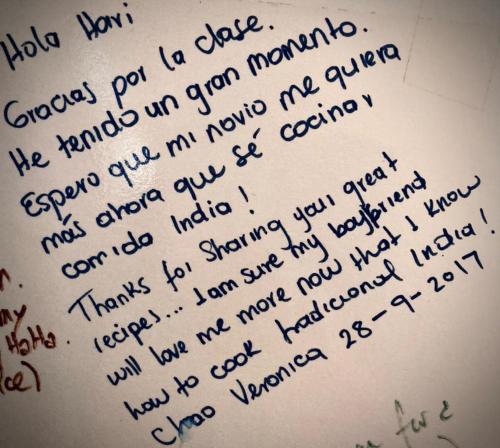 Hola Hari
Gracias por la clase.
He tenido un gran momento.
Espero que mi novio me quiera
más ahora que sé cocinar
comida India!
Thanks for sharing your great
recipes... I am sure my boyfriend
will love me more now that I know
how to cook tradicional India!
Chao Veronica 28-9-2017
n.
my
HaHa.
ce)
for a